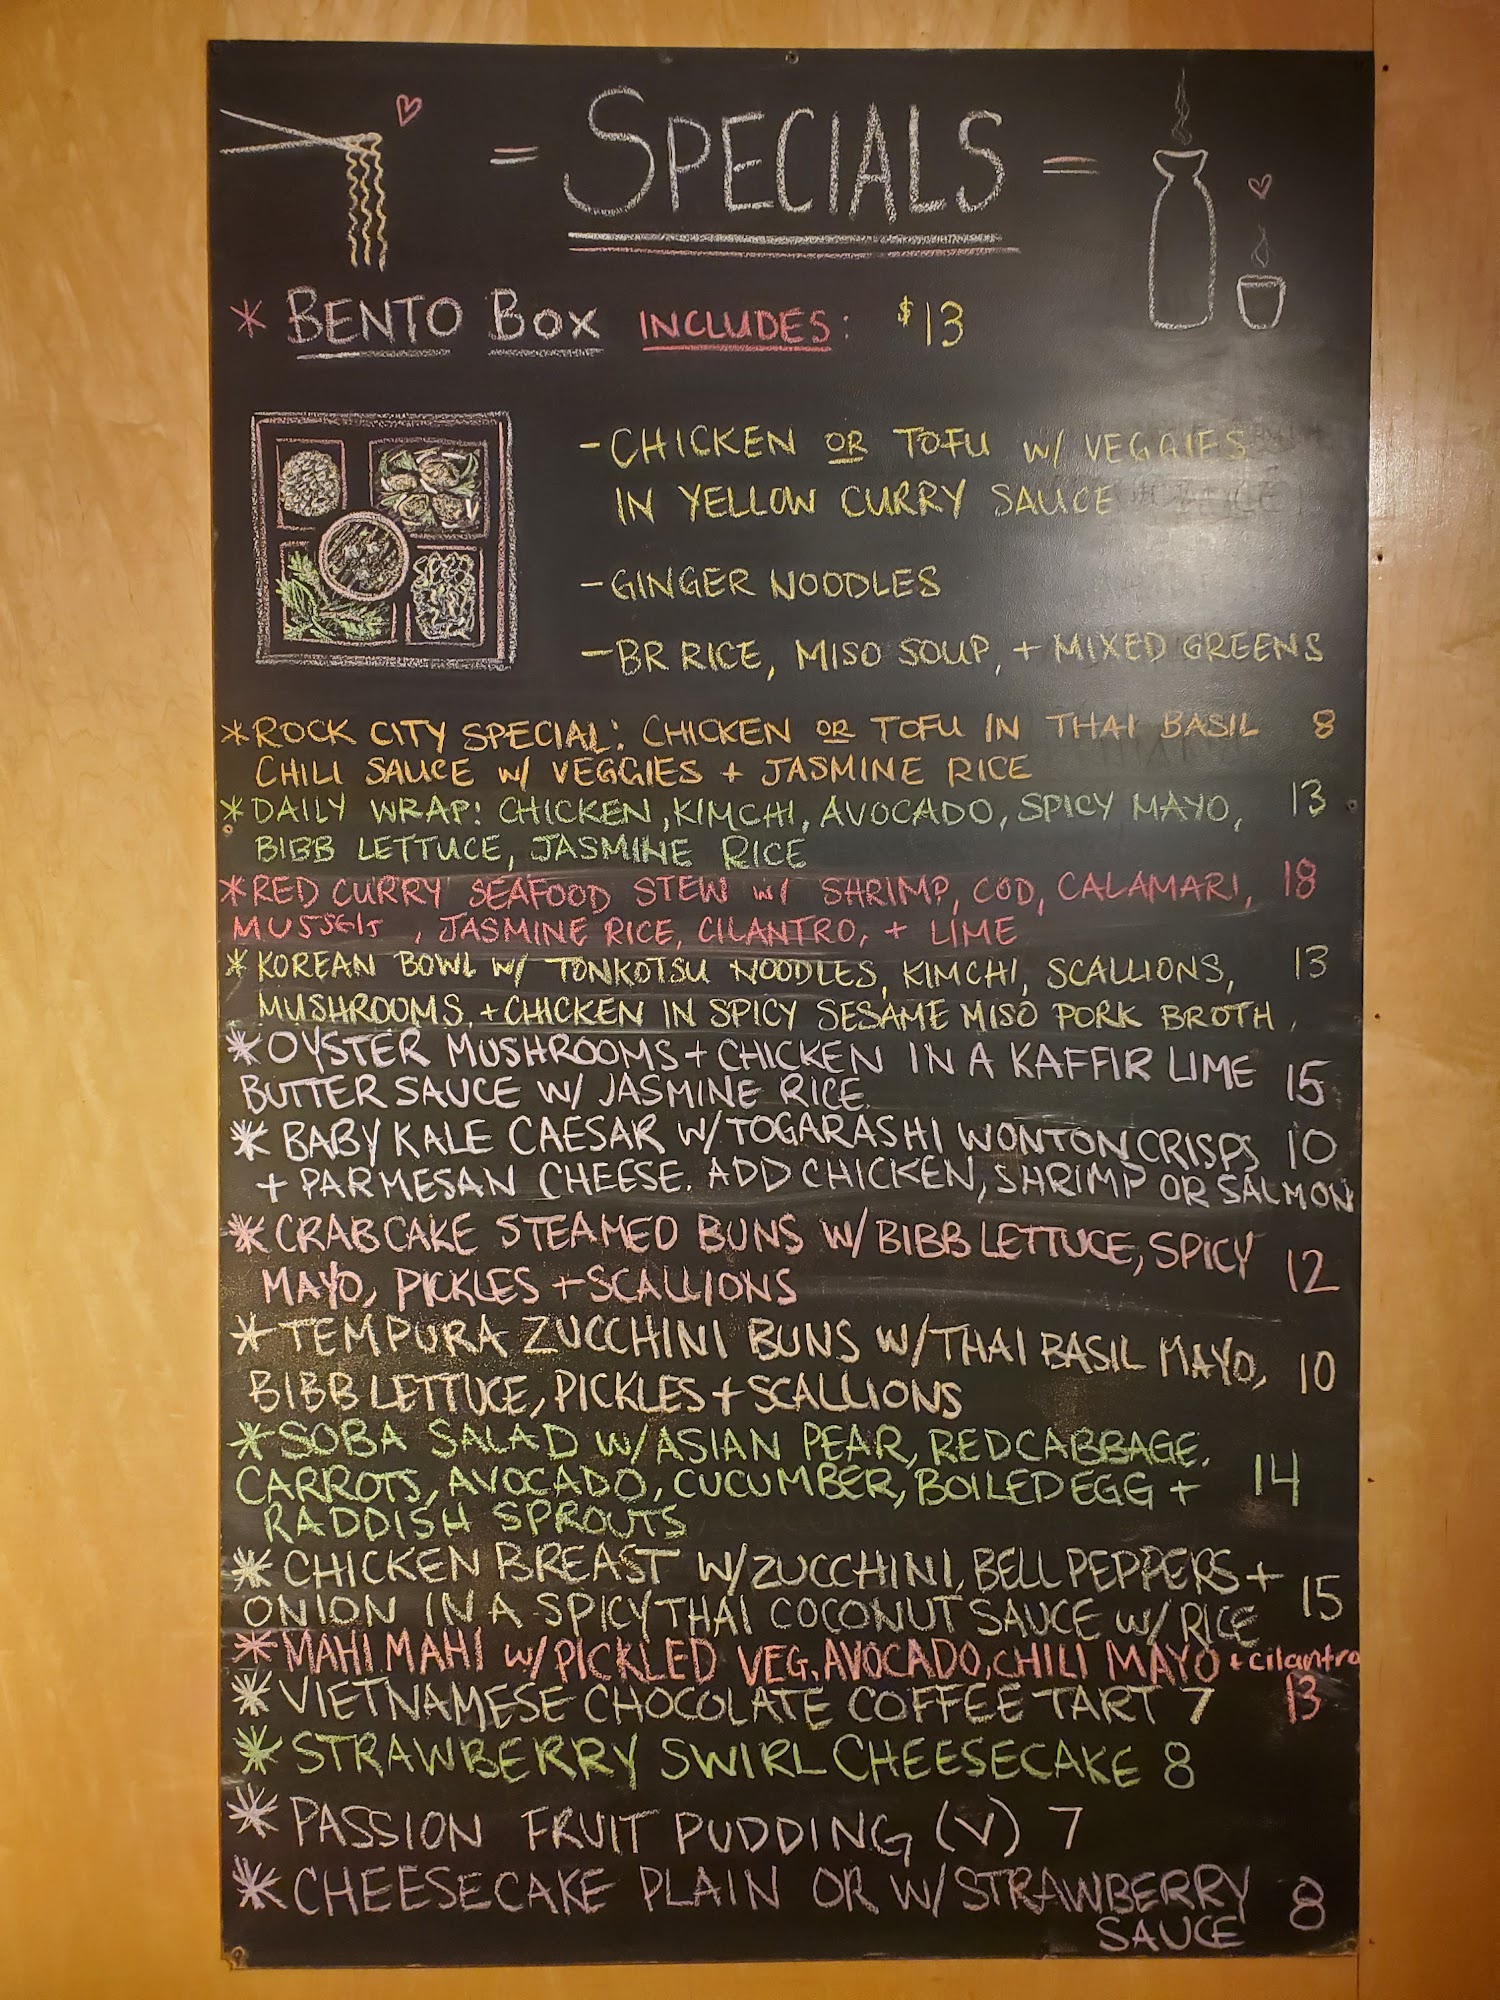 = SPECIALS =
* BENTO BOX INCLUDES: $13
- CHICKEN OR TOFU W/ VEGGIES
IN YELLOW CURRY SAUCE
- GINGER NOODLES
- BR RICE, MISO SOUP, + MIXED GREENS
* ROCK CITY SPECIAL: CHICKEN OR TOFU IN THAI BASIL 8
CHILI SAUCE W/ VEGGIES + JASMINE RICE
* DAILY WRAP: CHICKEN, KIMCHI, AVOCADO, SPICY MAYO, 13
BIBB LETTUCE, JASMINE RICE
* RED CURRY SEAFOOD STEW W/ SHRIMP, COD, CALAMARI, 18
MUSSELS, JASMINE RICE, CILANTRO, + LIME
* KOREAN BOWL W/ TONKOTSU NOODLES, KIMCHI, SCALLIONS, 13
MUSHROOMS, + CHICKEN IN SPICY SESAME MISO PORK BROTH
* OYSTER MUSHROOMS + CHICKEN IN A KAFFIR LIME 15
BUTTER SAUCE W/ JASMINE RICE
* BABY KALE CAESAR W/ TOGARASHI WONTON CRISPS 10
+ PARMESAN CHEESE. ADD CHICKEN, SHRIMP OR SALMON
* CRABCAKE STEAMED BUNS W/ BIBB LETTUCE, SPICY 12
MAYO, PICKLES + SCALLIONS
* TEMPURA ZUCCHINI BUNS W/ THAI BASIL MAYO, 10
BIBB LETTUCE, PICKLES + SCALLIONS
* SOBA SALAD W/ ASIAN PEAR, RED CABBAGE,
CARROTS, AVOCADO, CUCUMBER, BOILED EGG + 14
RADDISH SPROUTS
* CHICKEN BREAST W/ ZUCCHINI, BELL PEPPERS + 15
ONION IN A SPICY THAI COCONUT SAUCE W/ RICE
* MAHI MAHI W/ PICKLED VEG, AVOCADO, CHILI MAYO + cilantro 13
* VIETNAMESE CHOCOLATE COFFEE TART 7
* STRAWBERRY SWIRL CHEESECAKE 8
* PASSION FRUIT PUDDING (V) 7
* CHEESECAKE PLAIN OR W/ STRAWBERRY 8
SAUCE